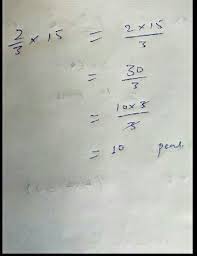 2/3 × 15 = 2 × 15/3
= 30/3
= 10 × 3/3
= 10